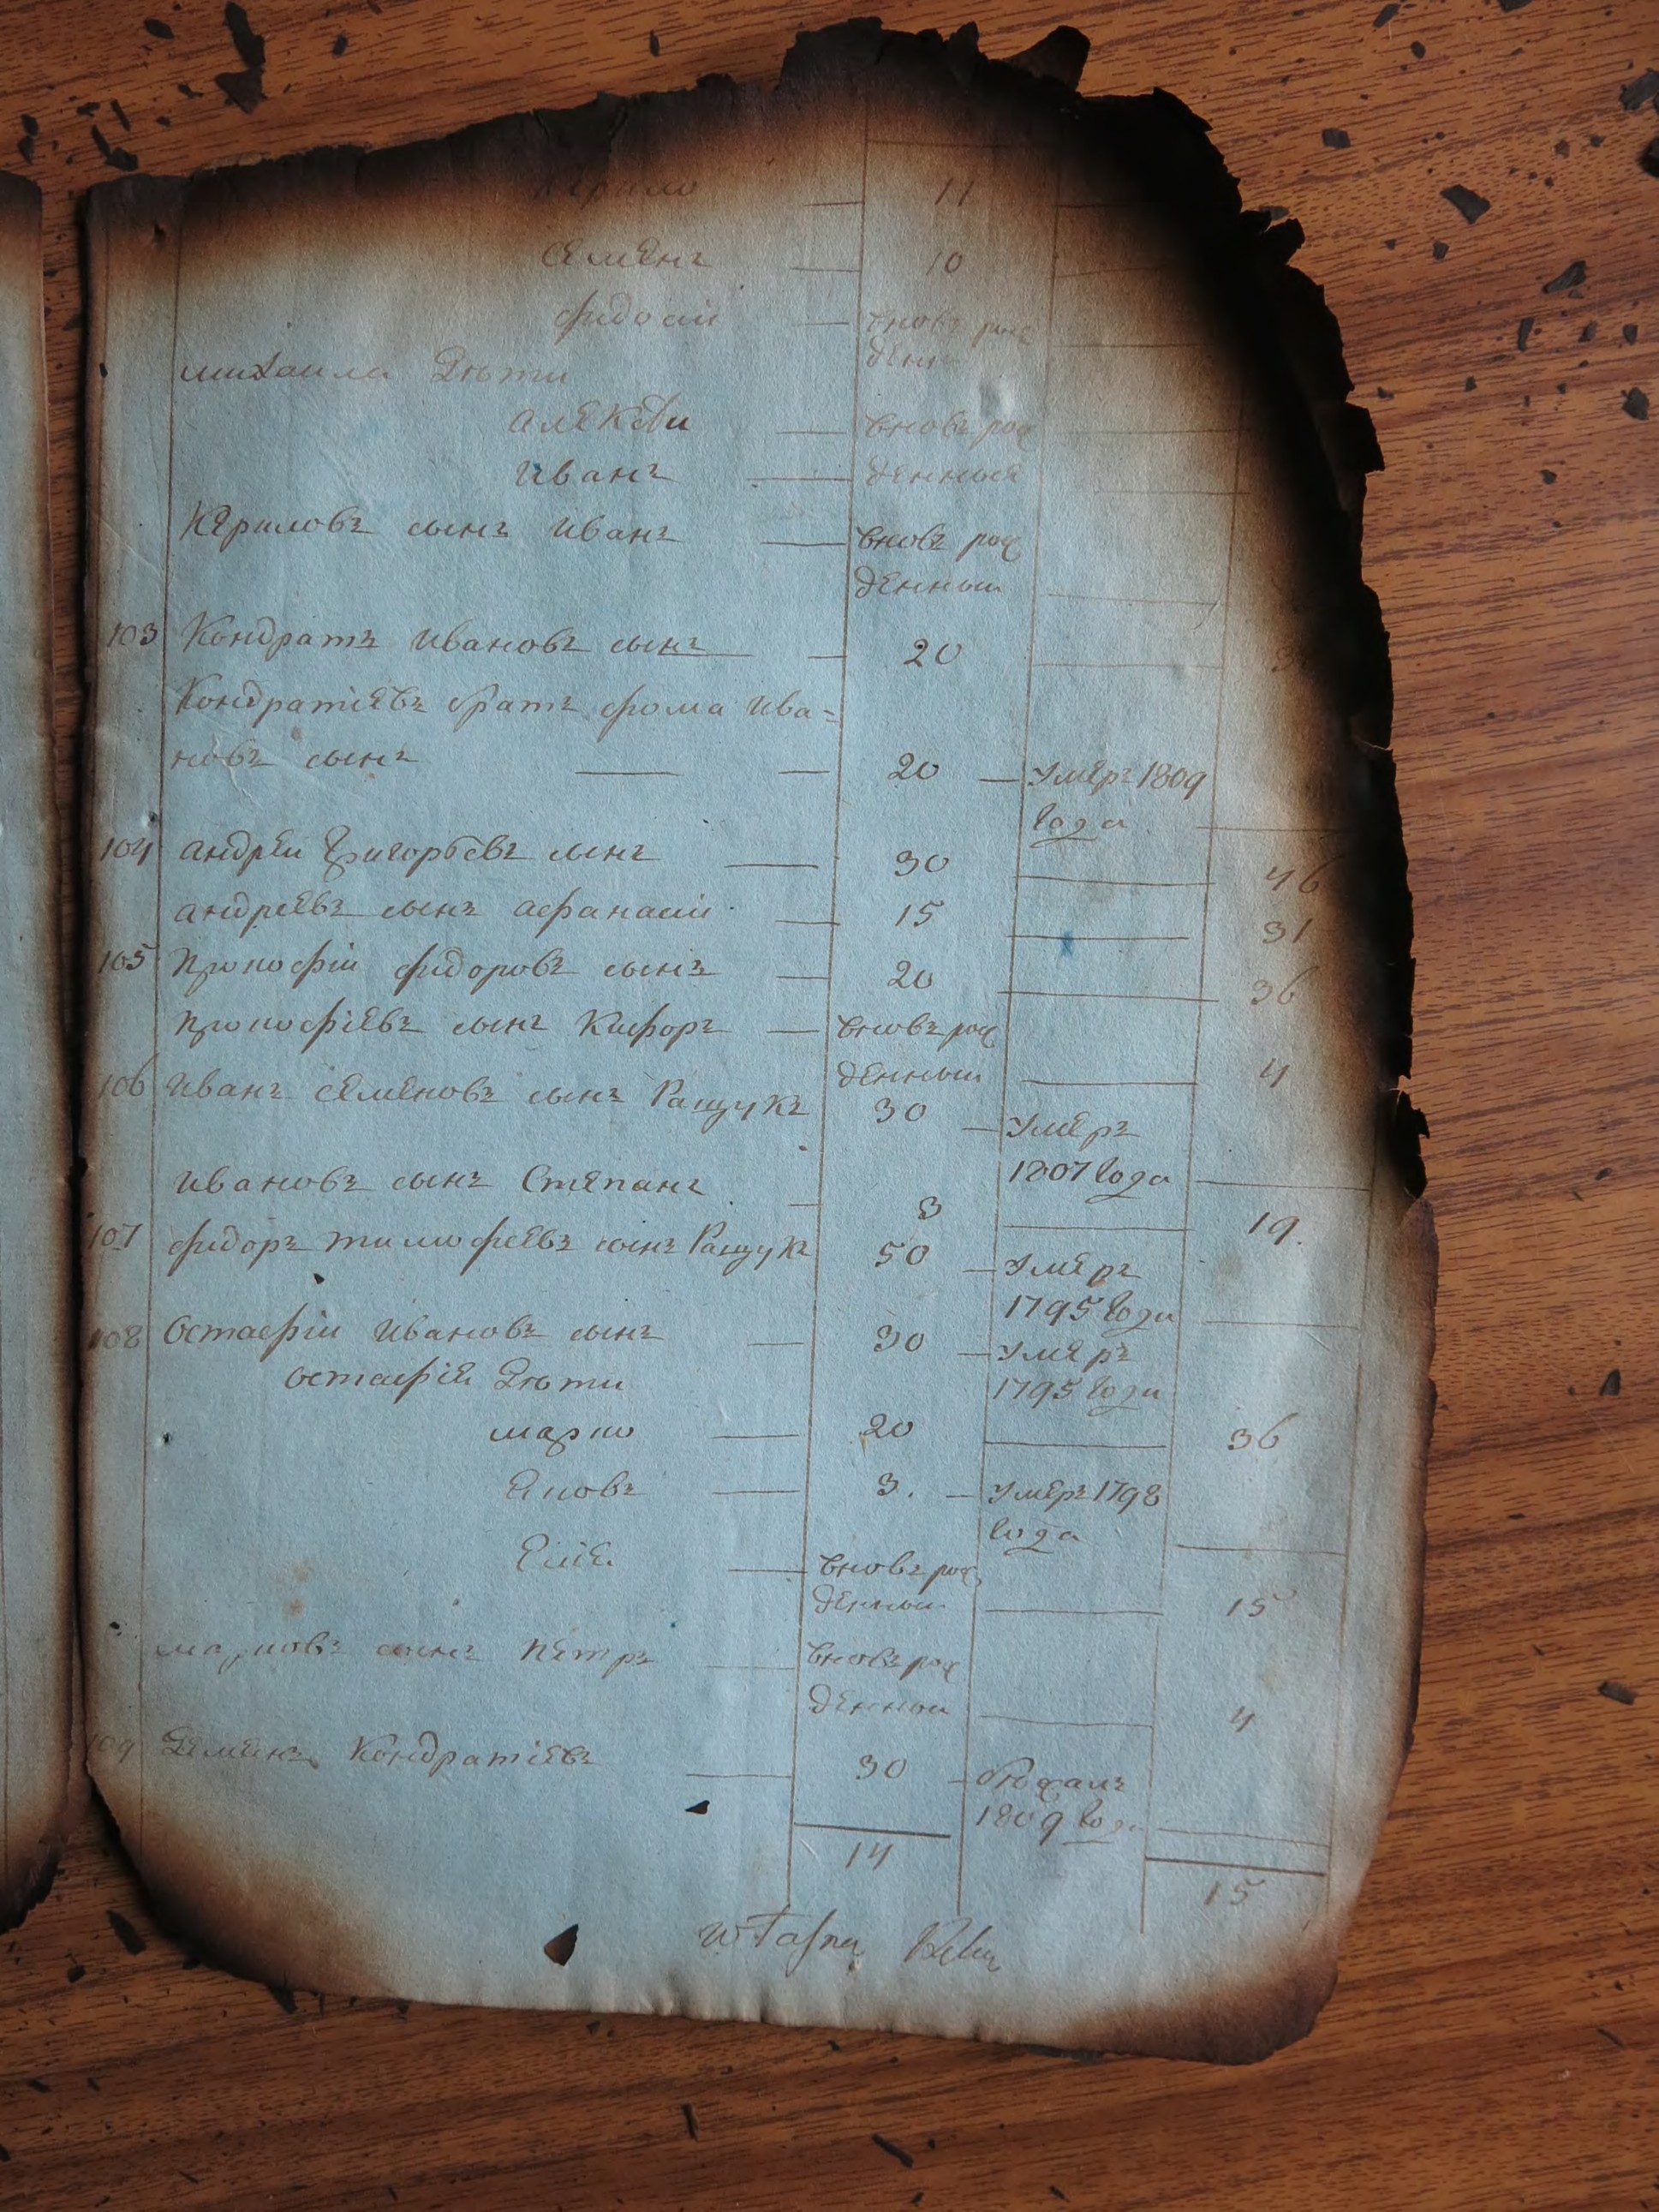 Кѣрило — 11
семенъ — 10
фидосий — вновь рож
денн
михаила Дѣти
алексѣи — вновь рож
иванъ — денныя
Кѣриловъ сынъ иванъ — вновь рож
денныи
103 Кондратъ ивановъ сынъ — 20
Кондратіевъ братъ фома ива=
новъ сынъ — 20 — умеръ 1809
года
104 андреи Григорьевъ сынъ — 30 — 46
андреевъ сынъ афанасий — 15 — 31
105 прокофій фидоровъ сынъ — 20 — 36
прокофіевъ сынъ — вновь рож
денныи — 4
106 иванъ семеновъ сынъ Ращукъ 30 — умеръ
1807 года
ивановъ сынъ Степанъ — 3 — 19.
107 фидоръ тимофеевъ сынъ Ращукъ 50 — умеръ
1795 года
108 Остафіи ивановъ сынъ — 30 — умеръ
остафія Дѣти 1795 года
марко — 20 — 36
яковъ — 3. — умеръ 1798
года
вновь рож
денныи — 15
марковъ сынъ петръ — вновь рож
денныи — 4
109 Кондратіевъ — 30 — бѣжалъ
1809 года
14
15